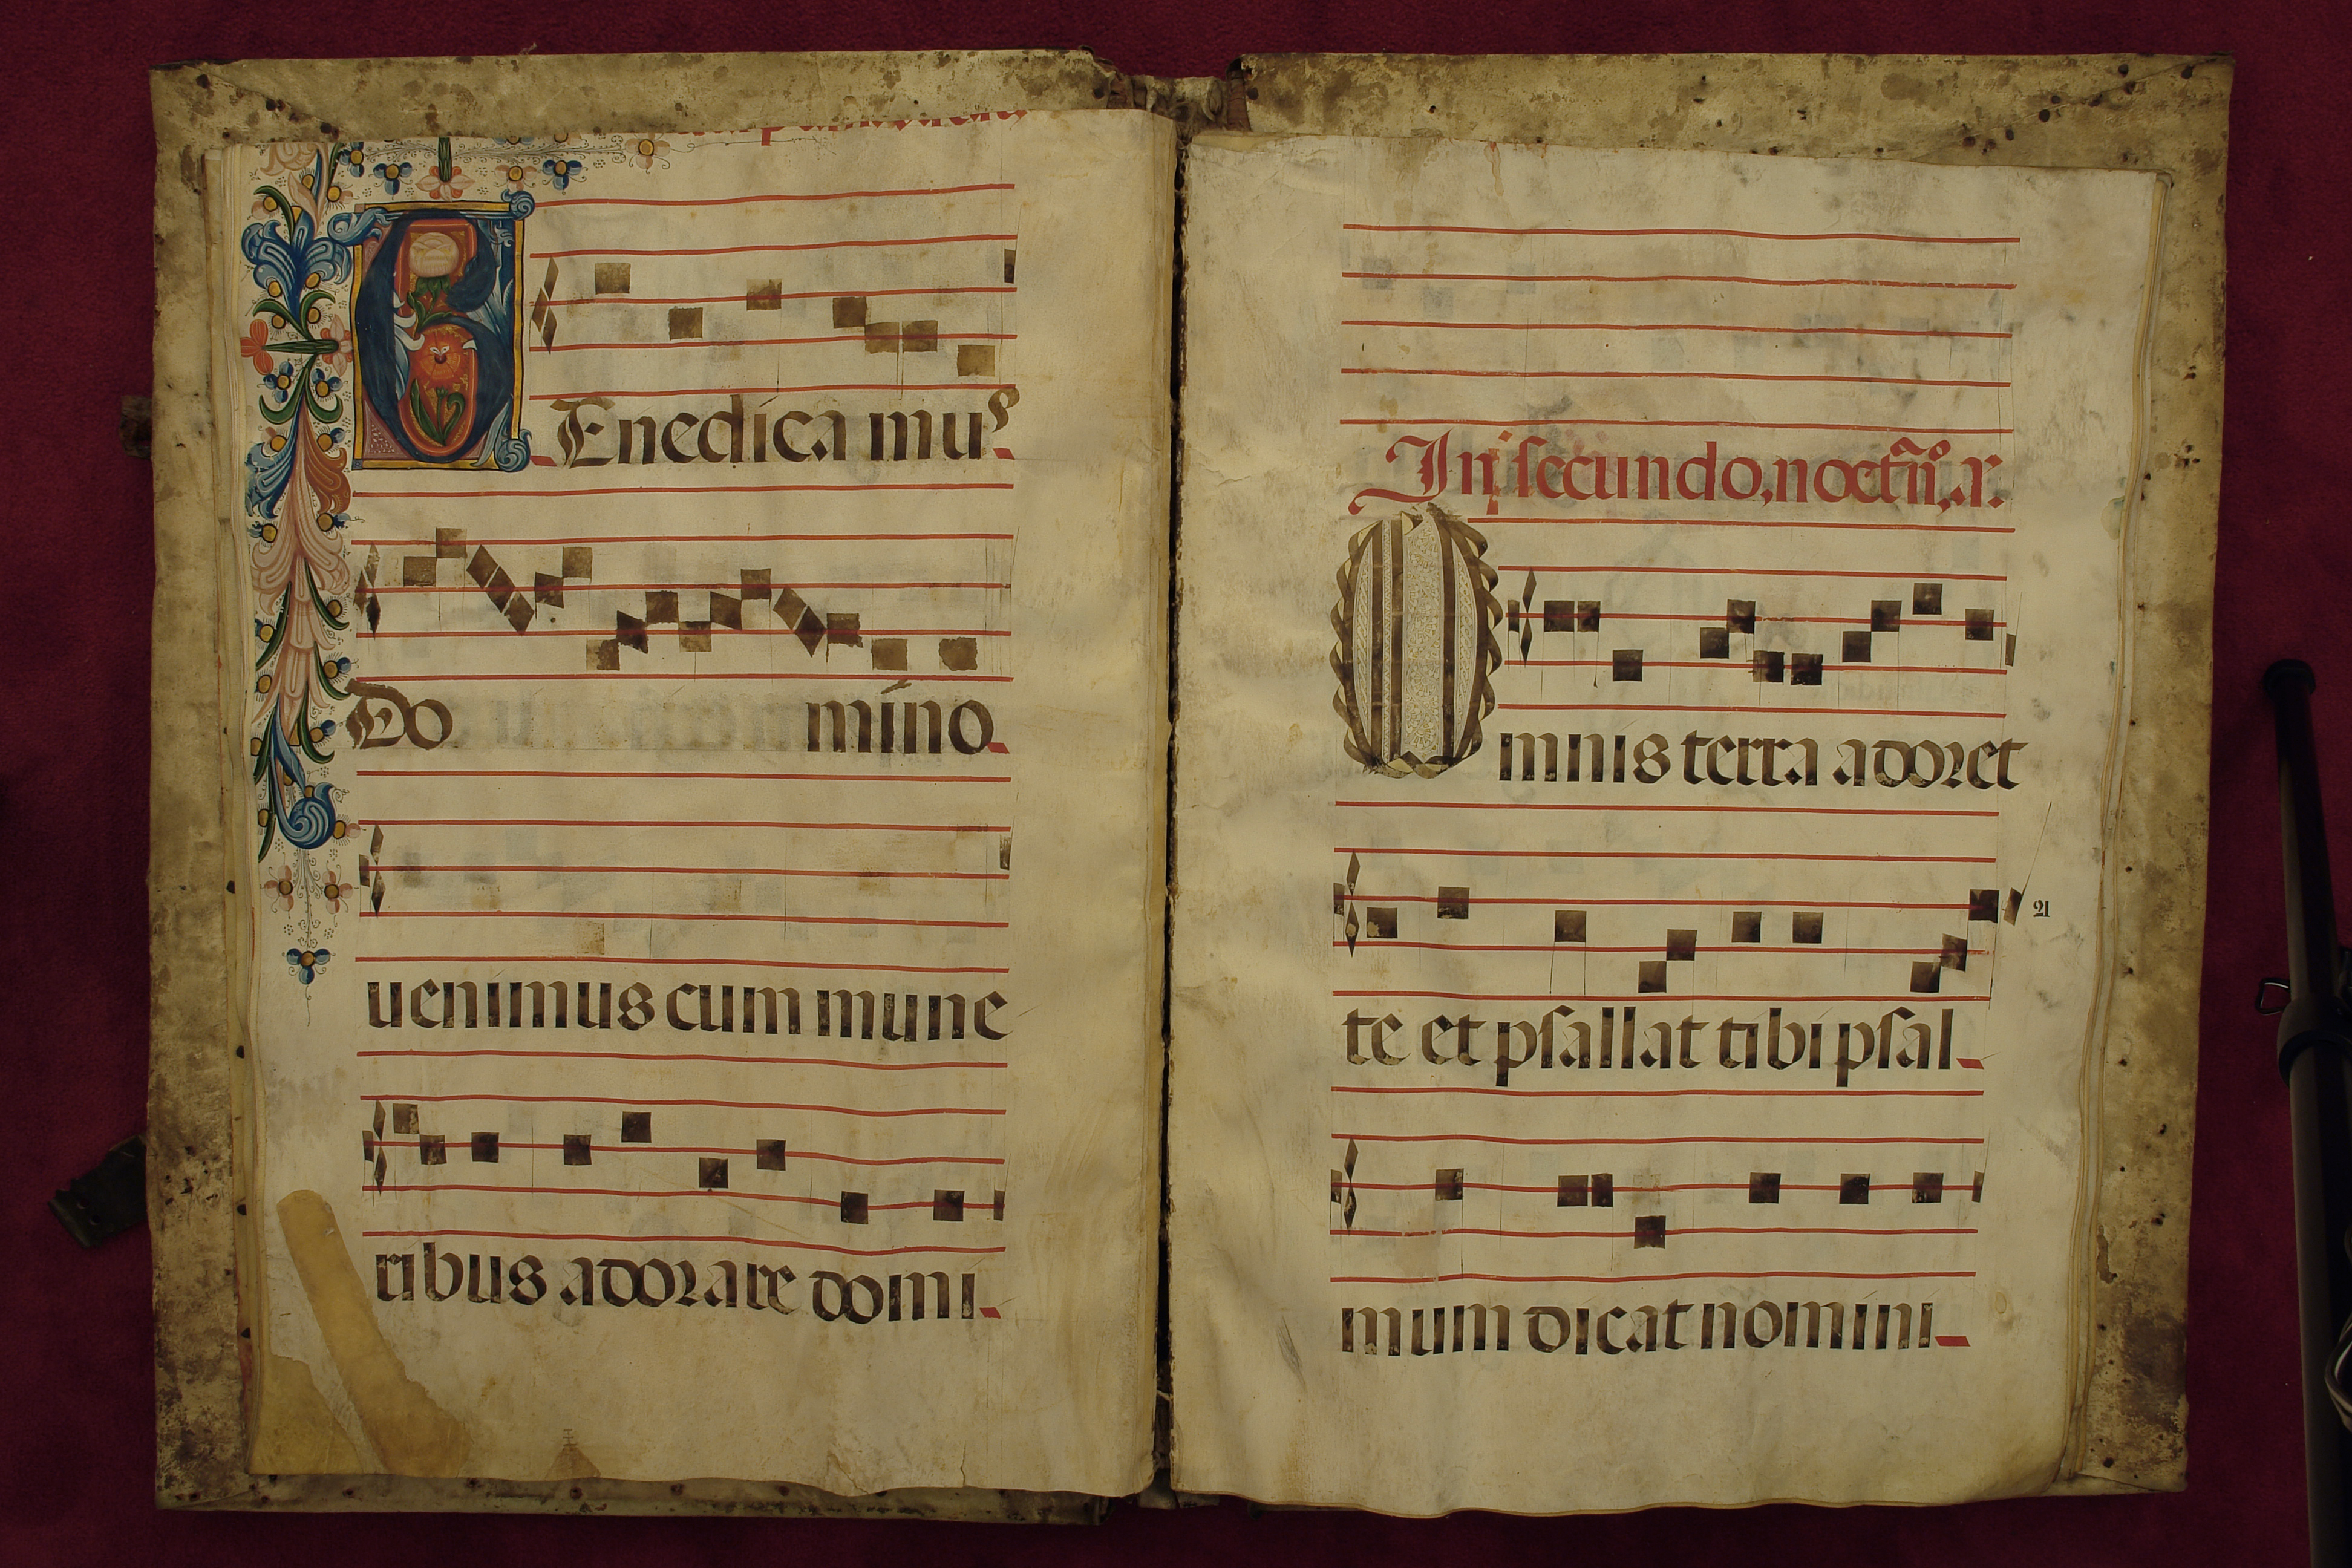 BEnedica mus
Do mino
uenimus cum mune
ribus adorare domi
In secundo, noctñº, añ.
Omnis terra adoret
21
te et psallat tibi psal
mum dicat nomini